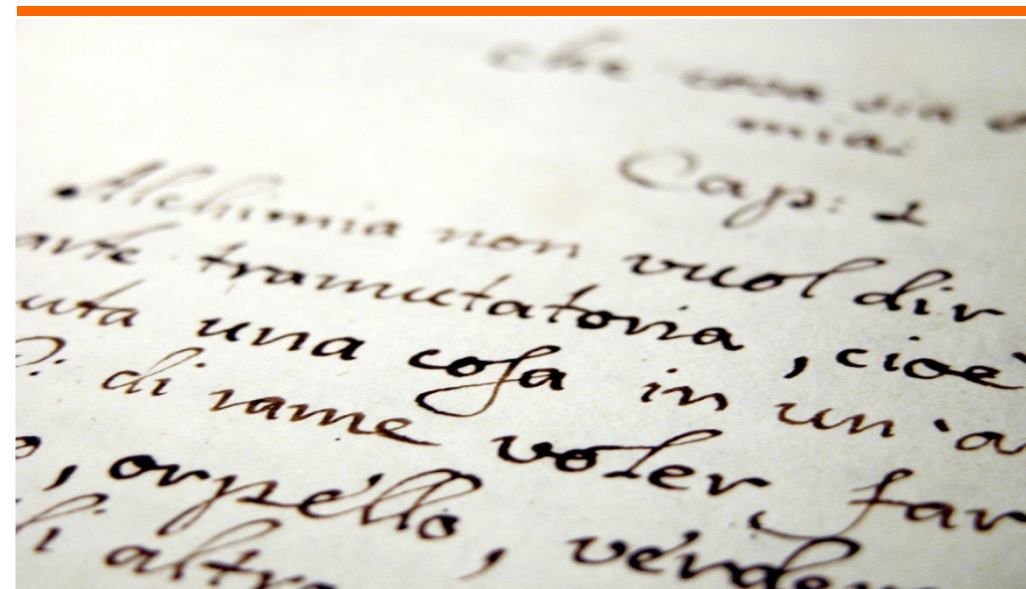 che cosa sia
mia.
Cap: 1
Alchimia non vuol dir
arte tramutatoria, cioè
uta una cosa in un'a
di rame voler far
, orpéllo, vérder
altr